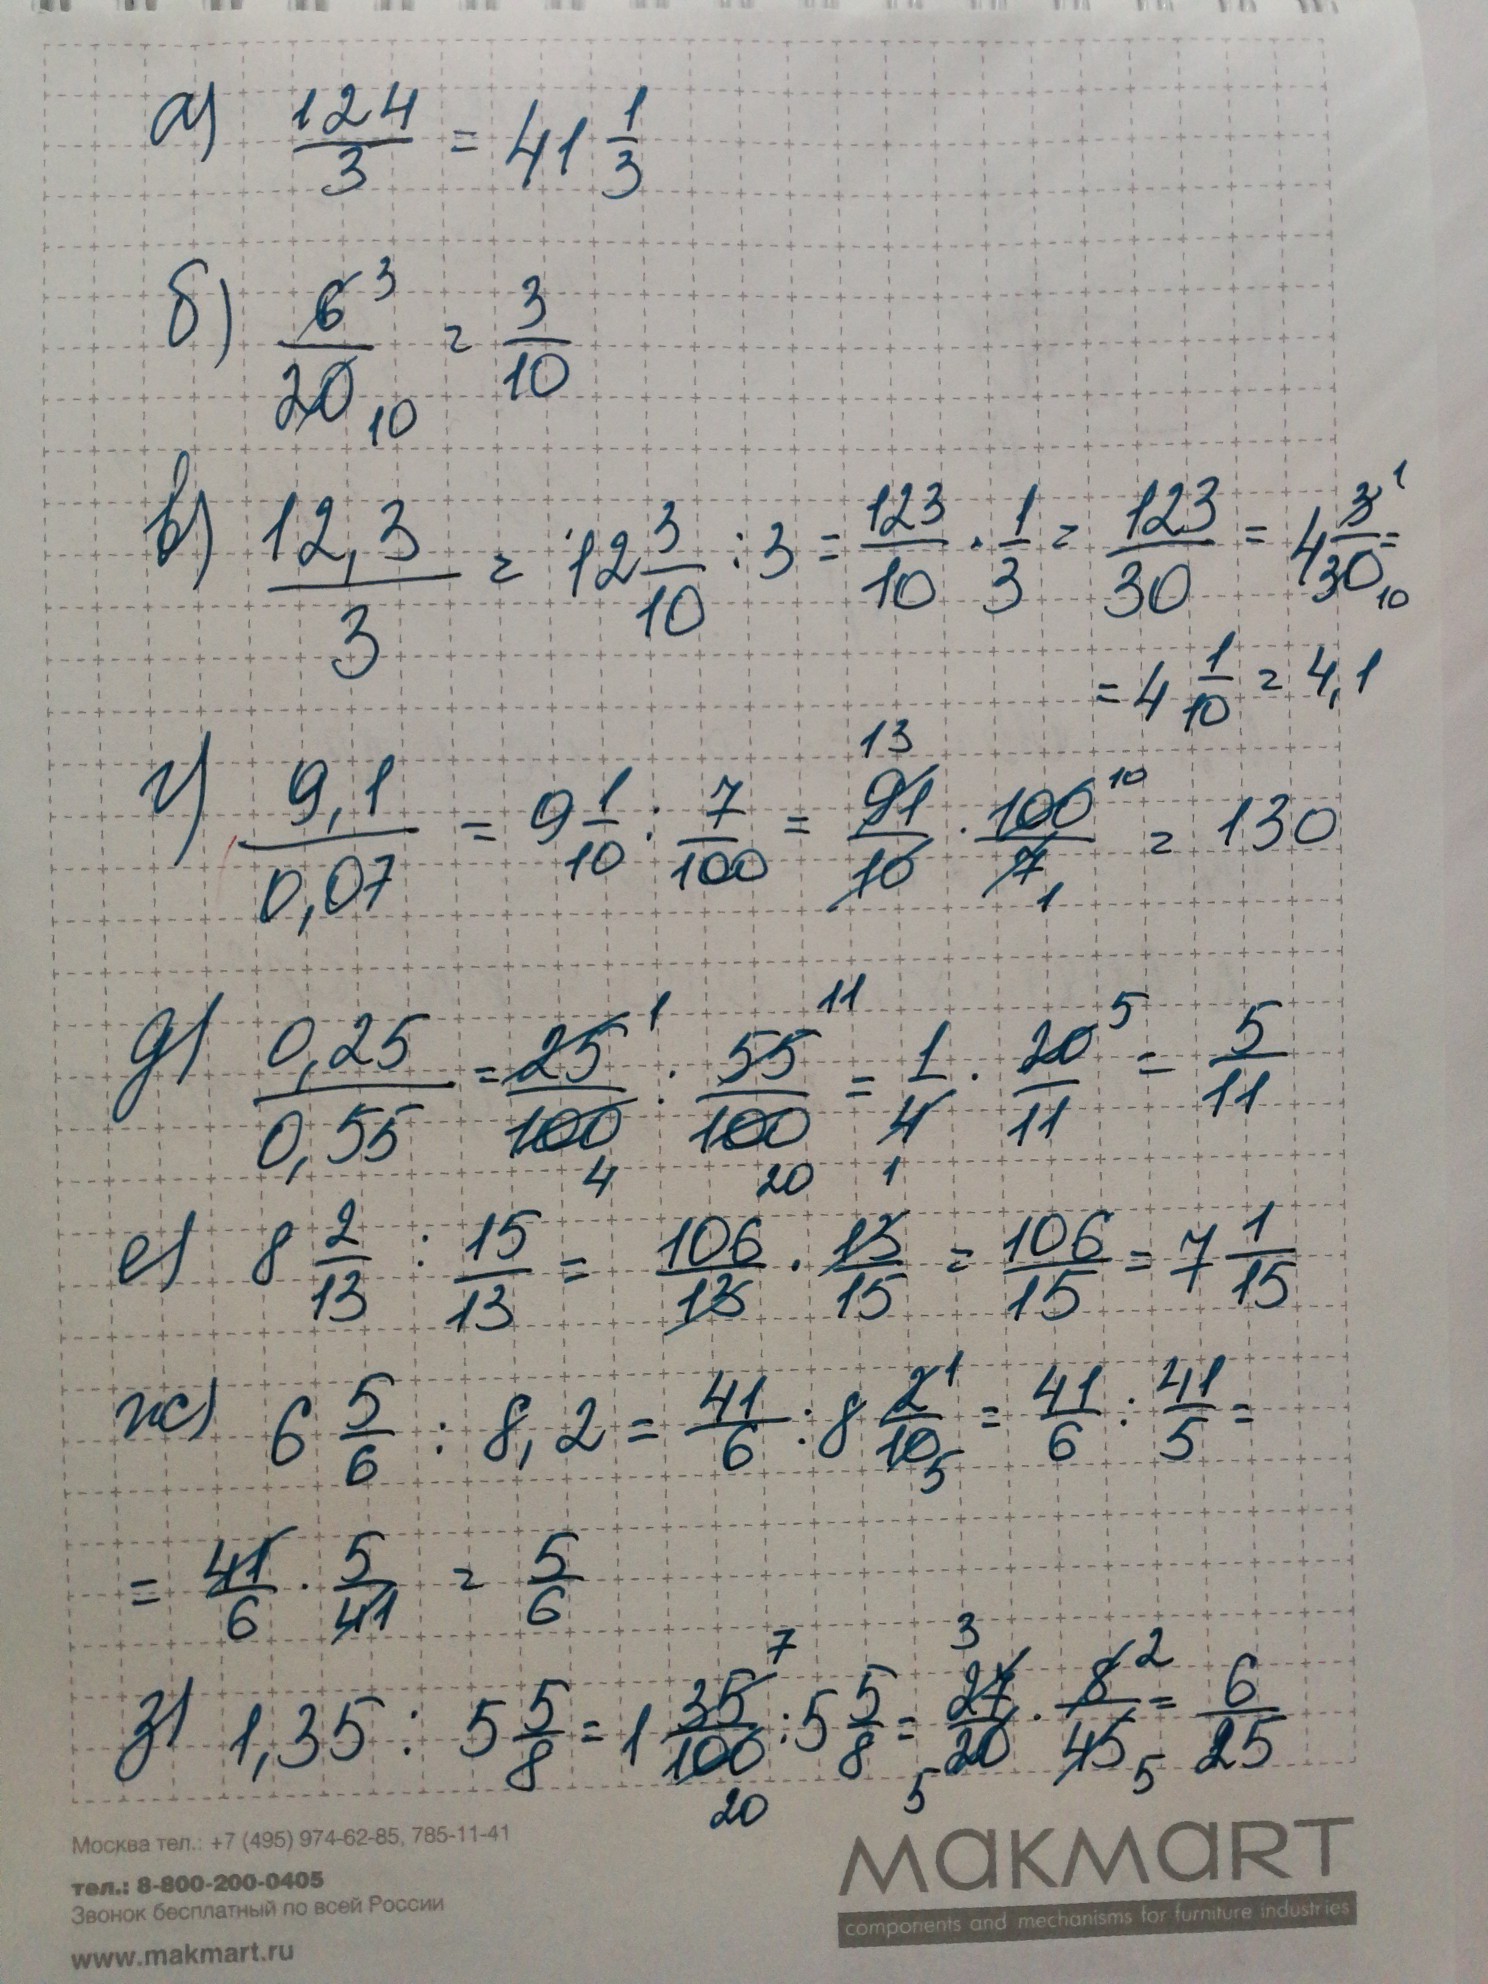 а) 124/3 = 41 1/3
б) 6 3/20 10 = 3/10
в) 12,3/3 = 12 3/10 : 3 = 123/10 · 1/3 = 123/30 = 4 3 1/30 10 =
= 4 1/10 = 4,1
г) 9,1/0,07 = 9 1/10 : 7/100 = 13 91/10 · 100 10/7 1 = 130
д) 0,25/0,55 = 25 1/100 4 : 55 11/100 20 = 1/4 1 · 20 5/11 = 5/11
е) 8 2/13 : 15/13 = 106/13 · 13/15 = 106/15 = 7 1/15
ж) 6 5/6 : 8,2 = 41/6 : 8 2 1/10 5 = 41/6 : 41/5 =
= 41/6 · 5/41 = 5/6
з) 1,35 : 5 5/8 = 1 35 7/100 20 : 5 5/8 = 3 27/20 5 · 8 2/45 5 = 6/25
Москва тел.: +7 (495) 974-62-85, 785-11-41
тел.: 8-800-200-0405
Звонок бесплатный по всей России
www.makmart.ru
макмарт
components and mechanisms for furniture industries